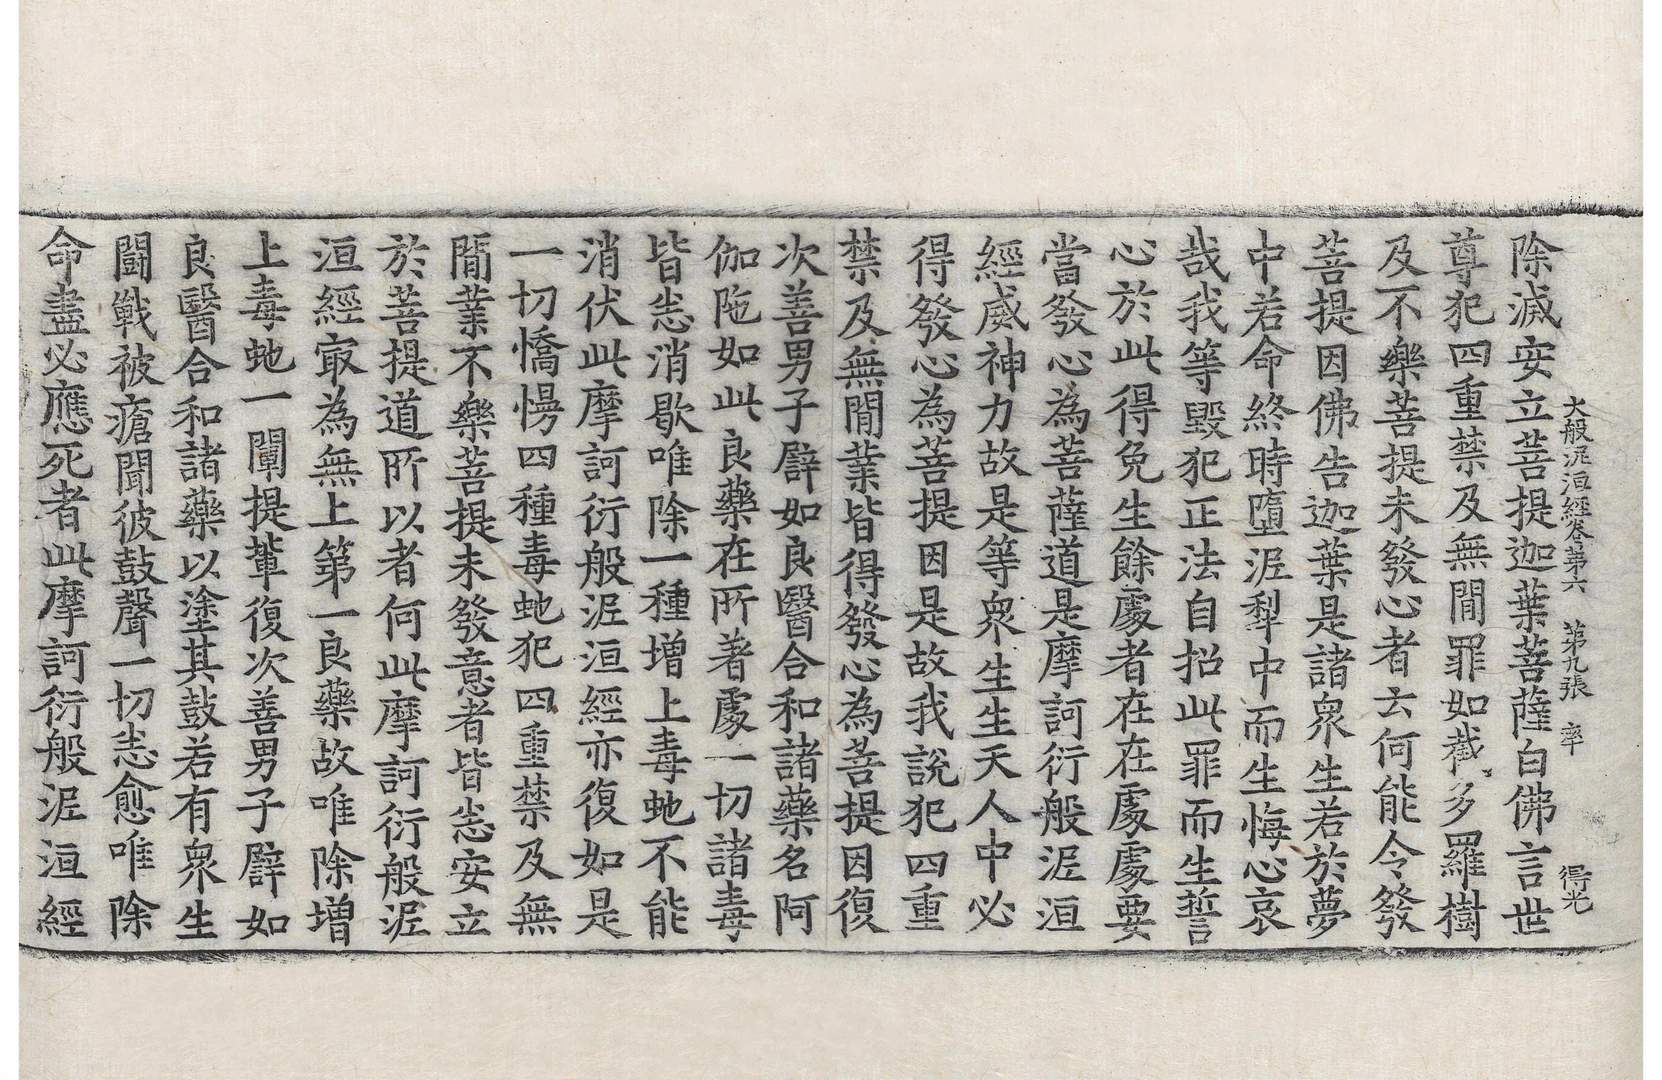 大般泥洹經卷第六　第九張　率　得光
除滅安立菩提迦葉菩薩白佛言世
尊犯四重禁及無閒罪如截多羅樹
及不樂菩提未發心者云何能令發
菩提因佛告迦葉是諸衆生若於夢
中若命終時墮泥犁中而生悔心哀
哉我等毀犯正法自招此罪而生誓
心於此得免生餘處者在在處處要
當發心為菩薩道是摩訶衍般泥洹
經威神力故是等衆生生天人中必
得發心為菩提因是故我說犯四重
禁及無閒業皆得發心為菩提因復
次善男子譬如良醫合和諸藥名阿
伽陁如此良藥在所著處一切諸毒
皆悉消歇唯除一種增上毒虵不能
消伏此摩訶衍般泥洹經亦復如是
一切憍慢四種毒虵犯四重禁及無
閒業不樂菩提未發意者皆悉安立
於菩提道所以者何此摩訶衍般泥
洹經㝡為無上第一良藥故唯除增
上毒虵一闡提輩復次善男子譬如
良醫合和諸藥以塗其鼓若有衆生
鬪戰被瘡聞彼鼓聲一切悉愈唯除
命盡必應死者此摩訶衍般泥洹經